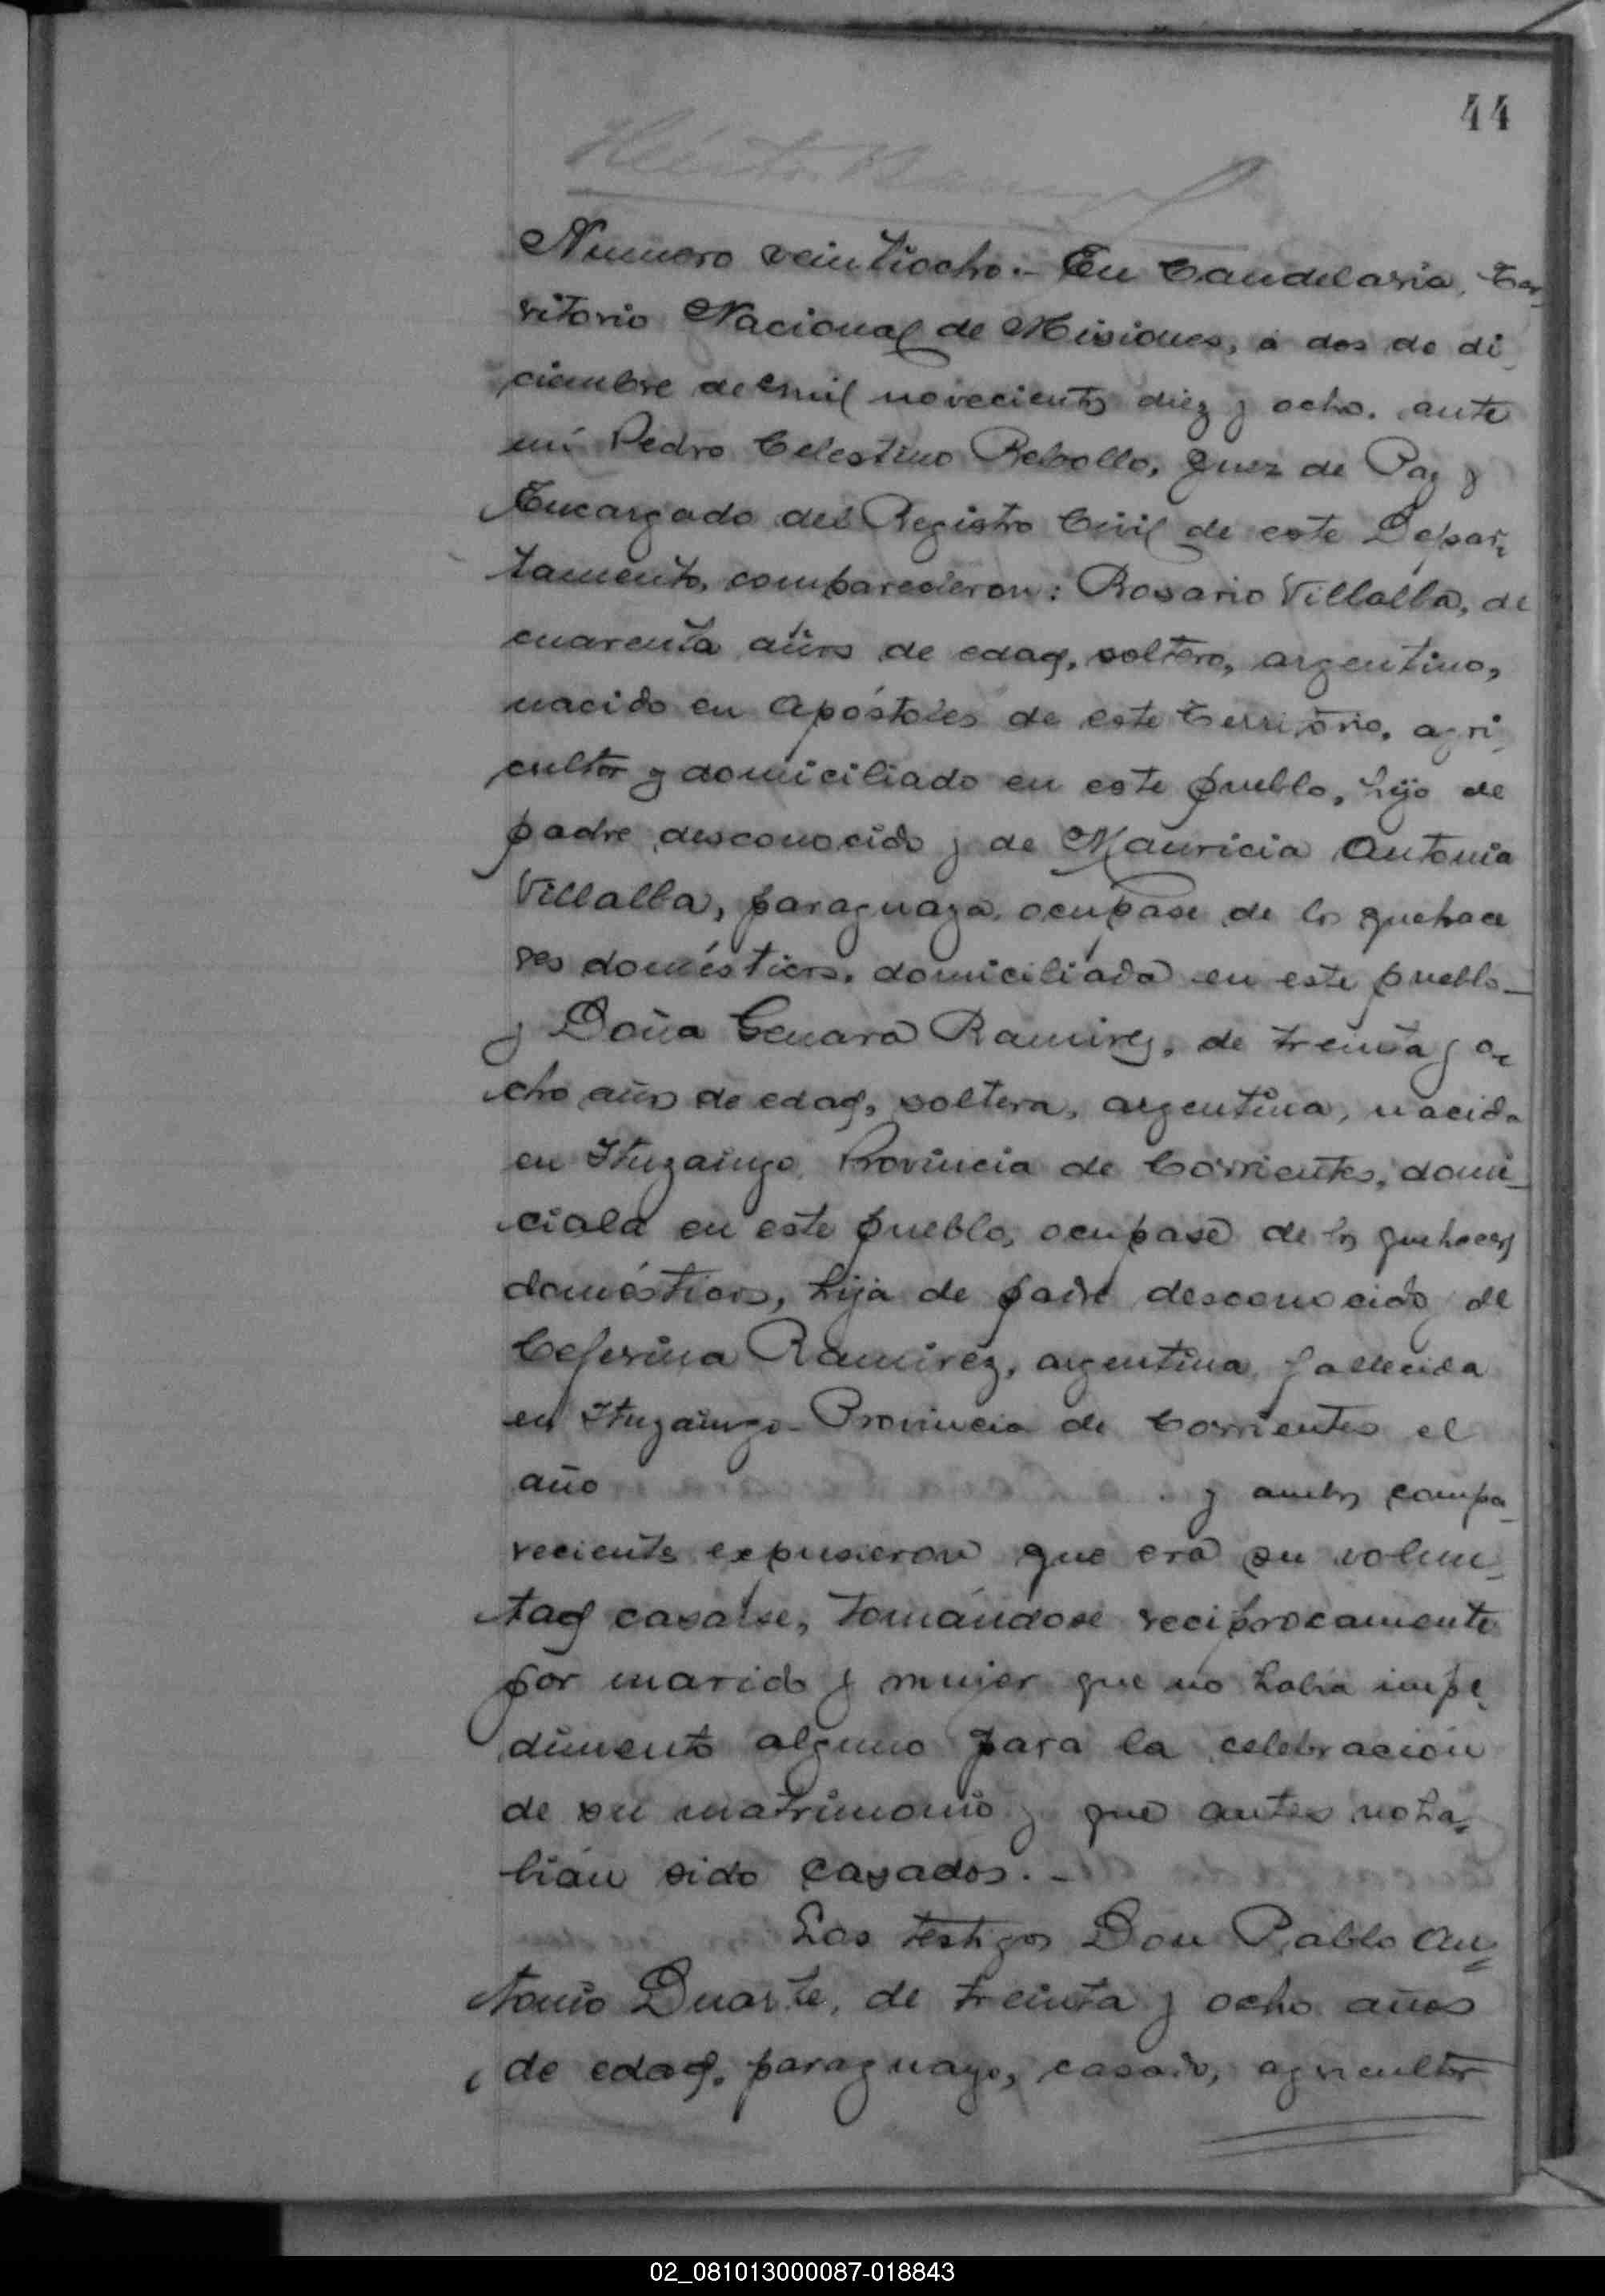 44
Numero veintiocho.- En Candelaria, Ter-
ritorio Nacional de Misiones, a dos de di-
ciembre de mil novecientos diez y ocho. ante
mí Pedro Celestino Rebollo, Juez de Paz y
Encargado del Registro Civil de este Depar-
tamento, comparecieron: Rosario Villalba, de
cuarenta años de edad, soltero, argentino,
nacido en Apóstoles de este Territorio, agri-
cultor y domiciliado en este pueblo, hijo de
padre desconocido y de Mauricia Antonia
Villalba, paraguaya, ocupase de los quehace
res domésticos, domiciliada en este pueblo-
y Doña Genara Ramirez, de treinta y o-
cho años de edad, soltera, argentina, nacida
en Ituzaingo, Provincia de Corrientes, domi-
ciala en este pueblo, ocupase de los quehaceres
domésticos, hija de padre desconocido y de
Ceferina Ramirez, argentina, fallecida
en Ituzaingo- Provincia de Corrientes el
año . y ambos compa-
recientes expusieron que era su volun-
tad casarse, tomándose reciprocamente
por marido y mujer que no habia impe-
dimento alguno para la celebración
de su matrimonio y que antes no ha-
bian sido casados.-
Los testigos Don Pablo An-
tonio Duarte, de treinta y ocho años
de edad, paraguayo, casado, agricultor
02_081013000087-018843